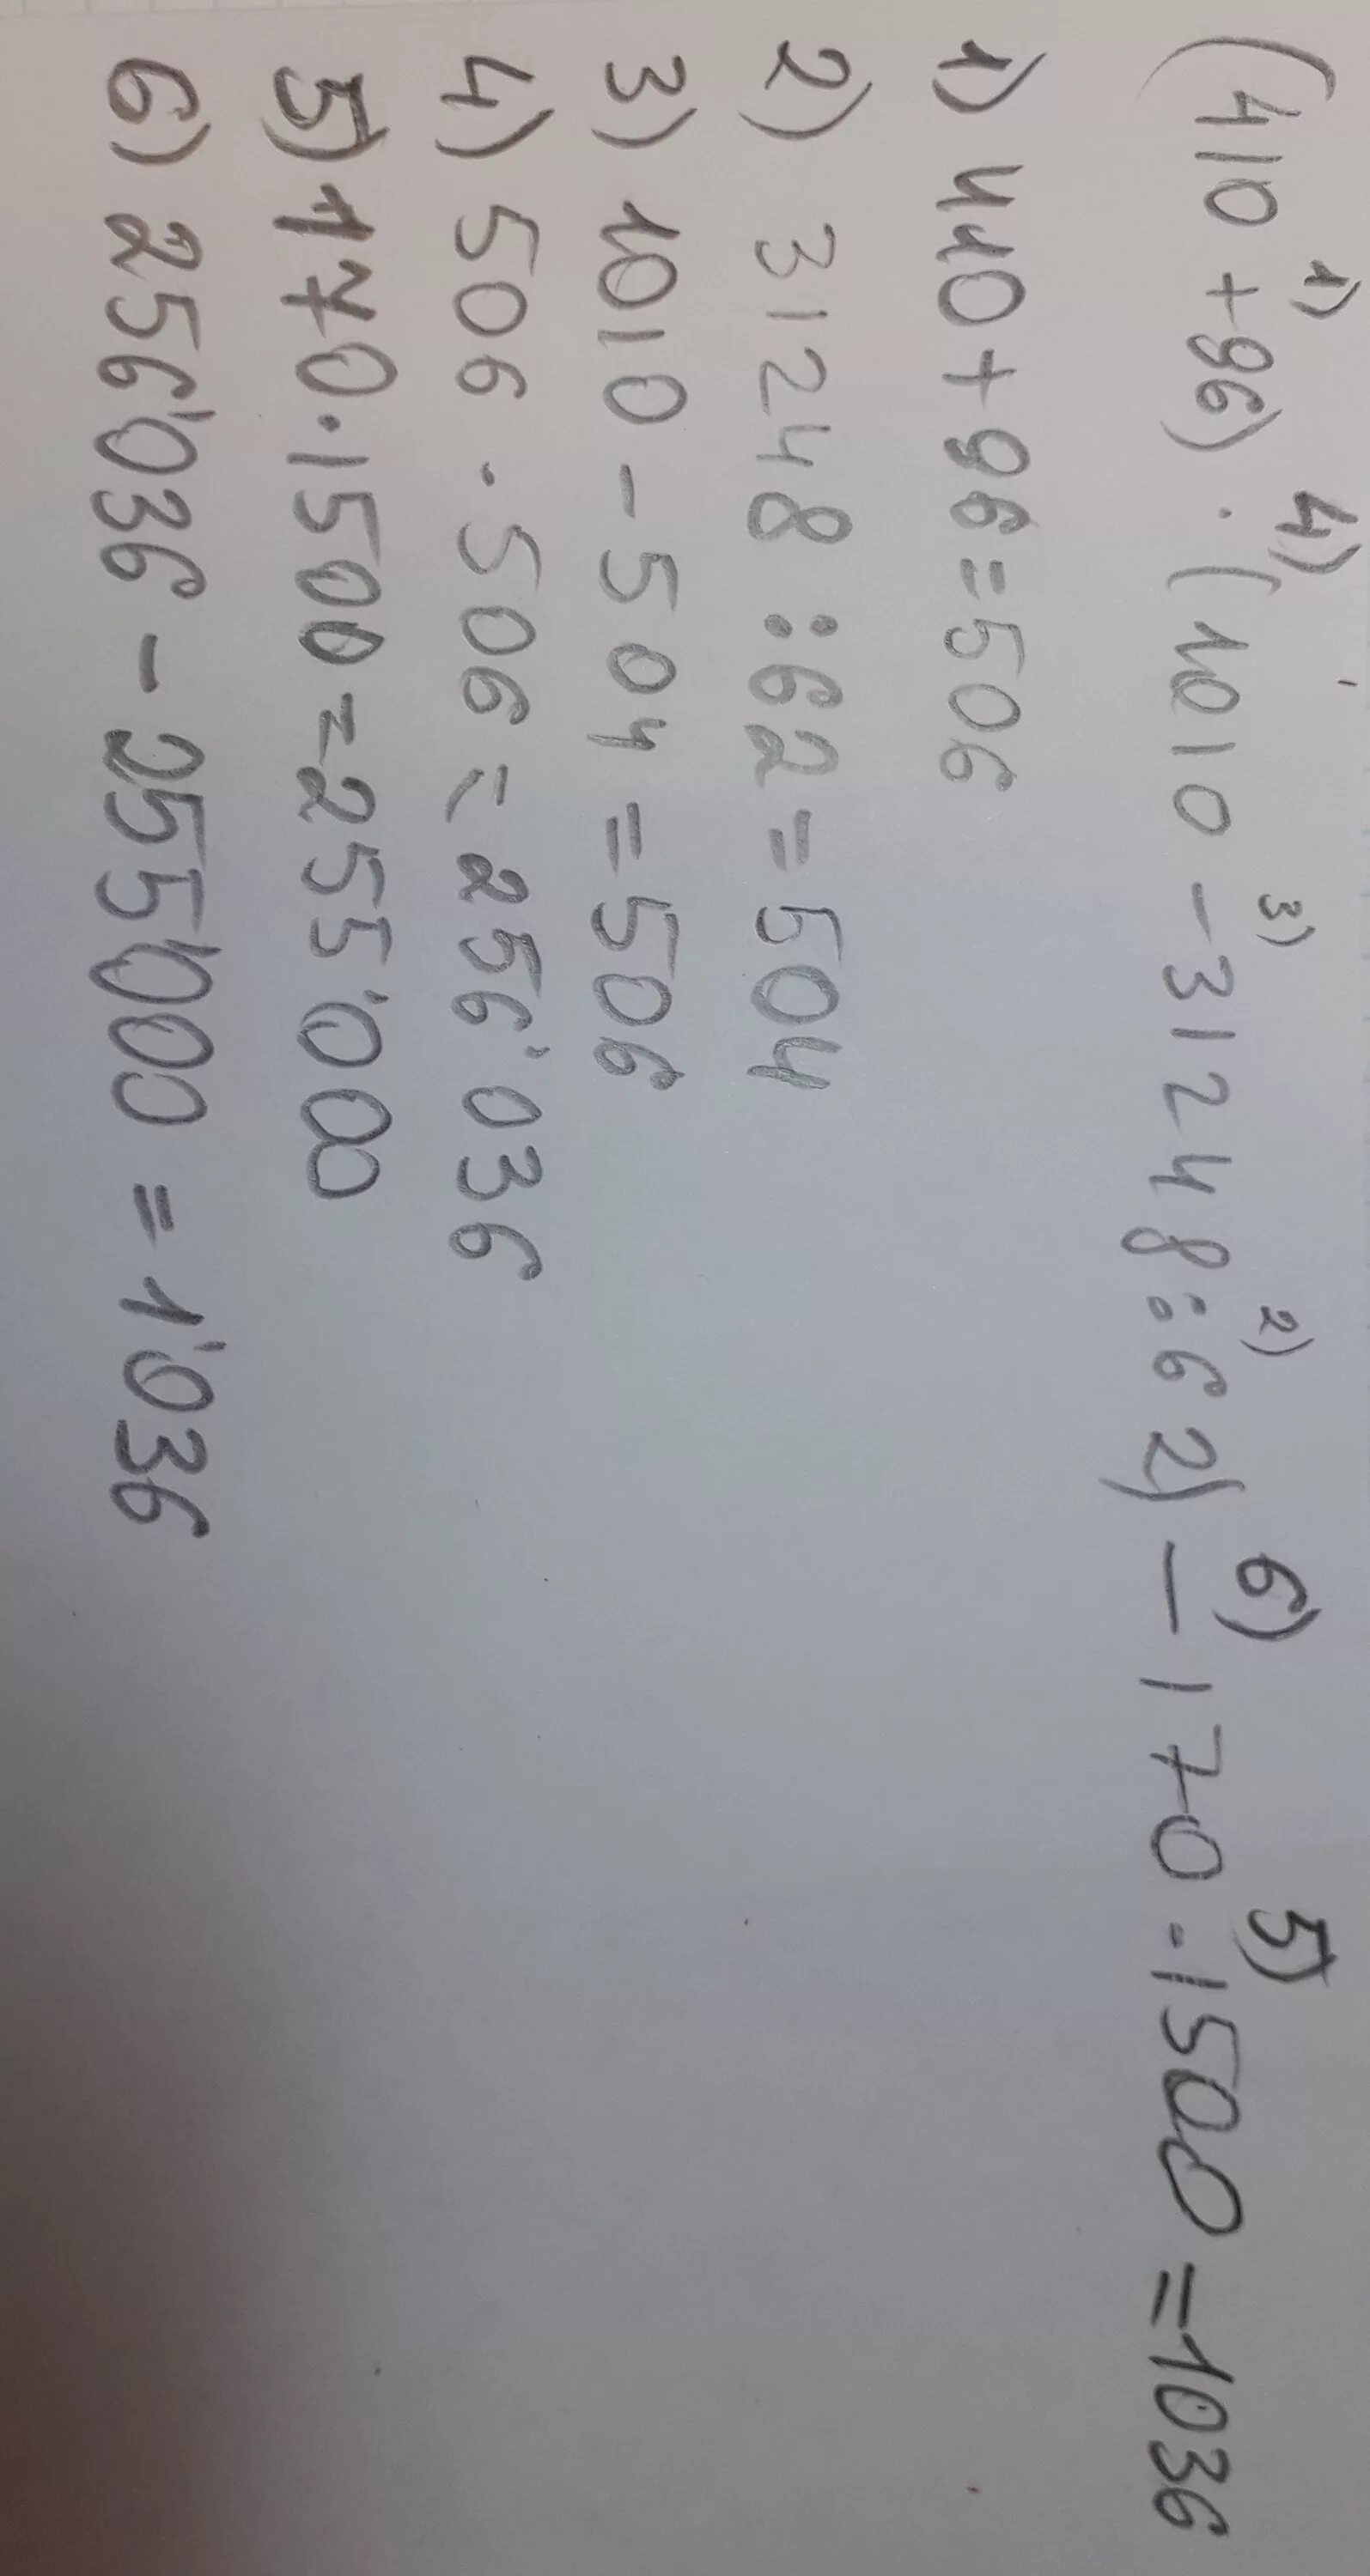 1) 4) 3) 2) 6) 5)
(410 + 96) · (1010 - 31248 : 62) - 170 · 1500 = 1036
1) 410 + 96 = 506
2) 31248 : 62 = 504
3) 1010 - 504 = 506
4) 506 · 506 = 256'036
5) 170 · 1500 = 255'000
6) 256'036 - 255'000 = 1'036